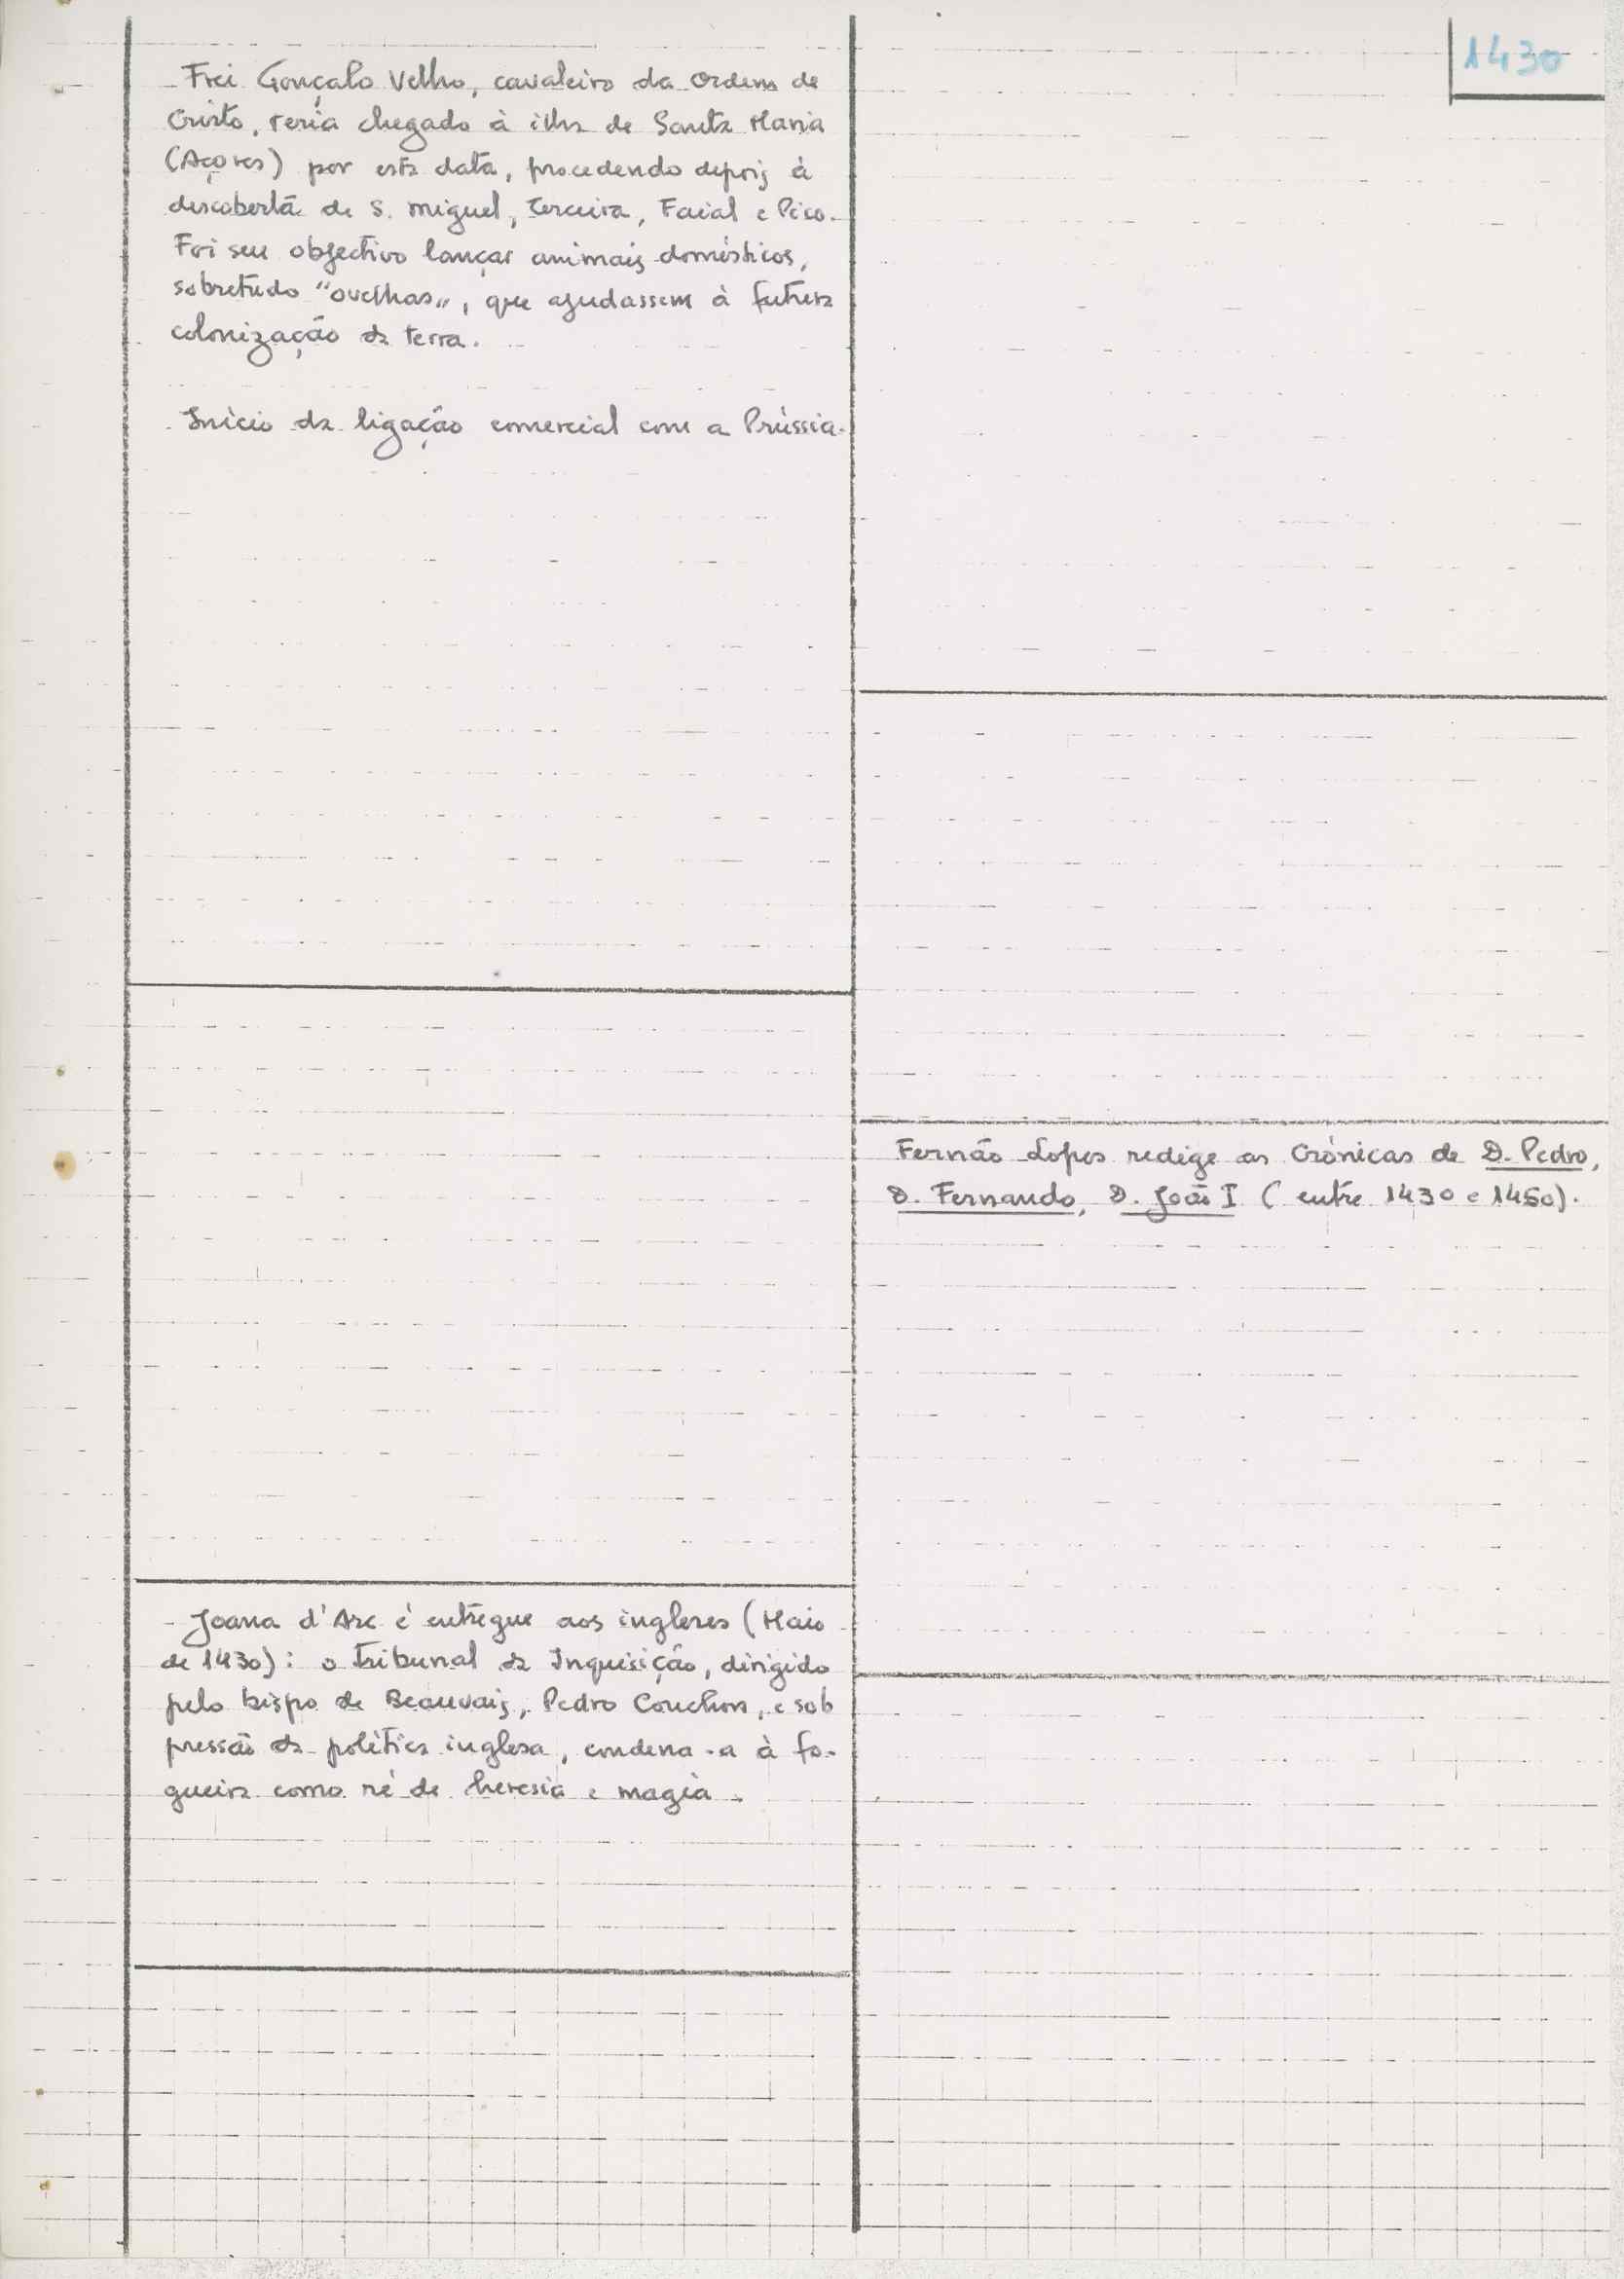 1430
Frei Gonçalo Velho, cavaleiro da Ordem de
Cristo, teria chegado à ilha de Santa Maria
(Açores) por esta data, procedendo depois à
descoberta de S. Miguel, Terceira, Faial e Pico.
Foi seu objectivo lançar animais domésticos,
sobretudo "ovelhas", que ajudassem à futura
colonização da terra.
Início da ligação comercial com a Prússia.
Joana d'Arc é entregue aos ingleses (Maio
de 1430): o tribunal da Inquisição, dirigido
pelo bispo de Beauvais, Pedro Couchon, e sob
pressão da política inglesa, condena-a à fo-
gueira como ré de heresia e magia.
Fernão Lopes redige as Crónicas de D. Pedro,
D. Fernando, D. João I (entre 1430 e 1450).